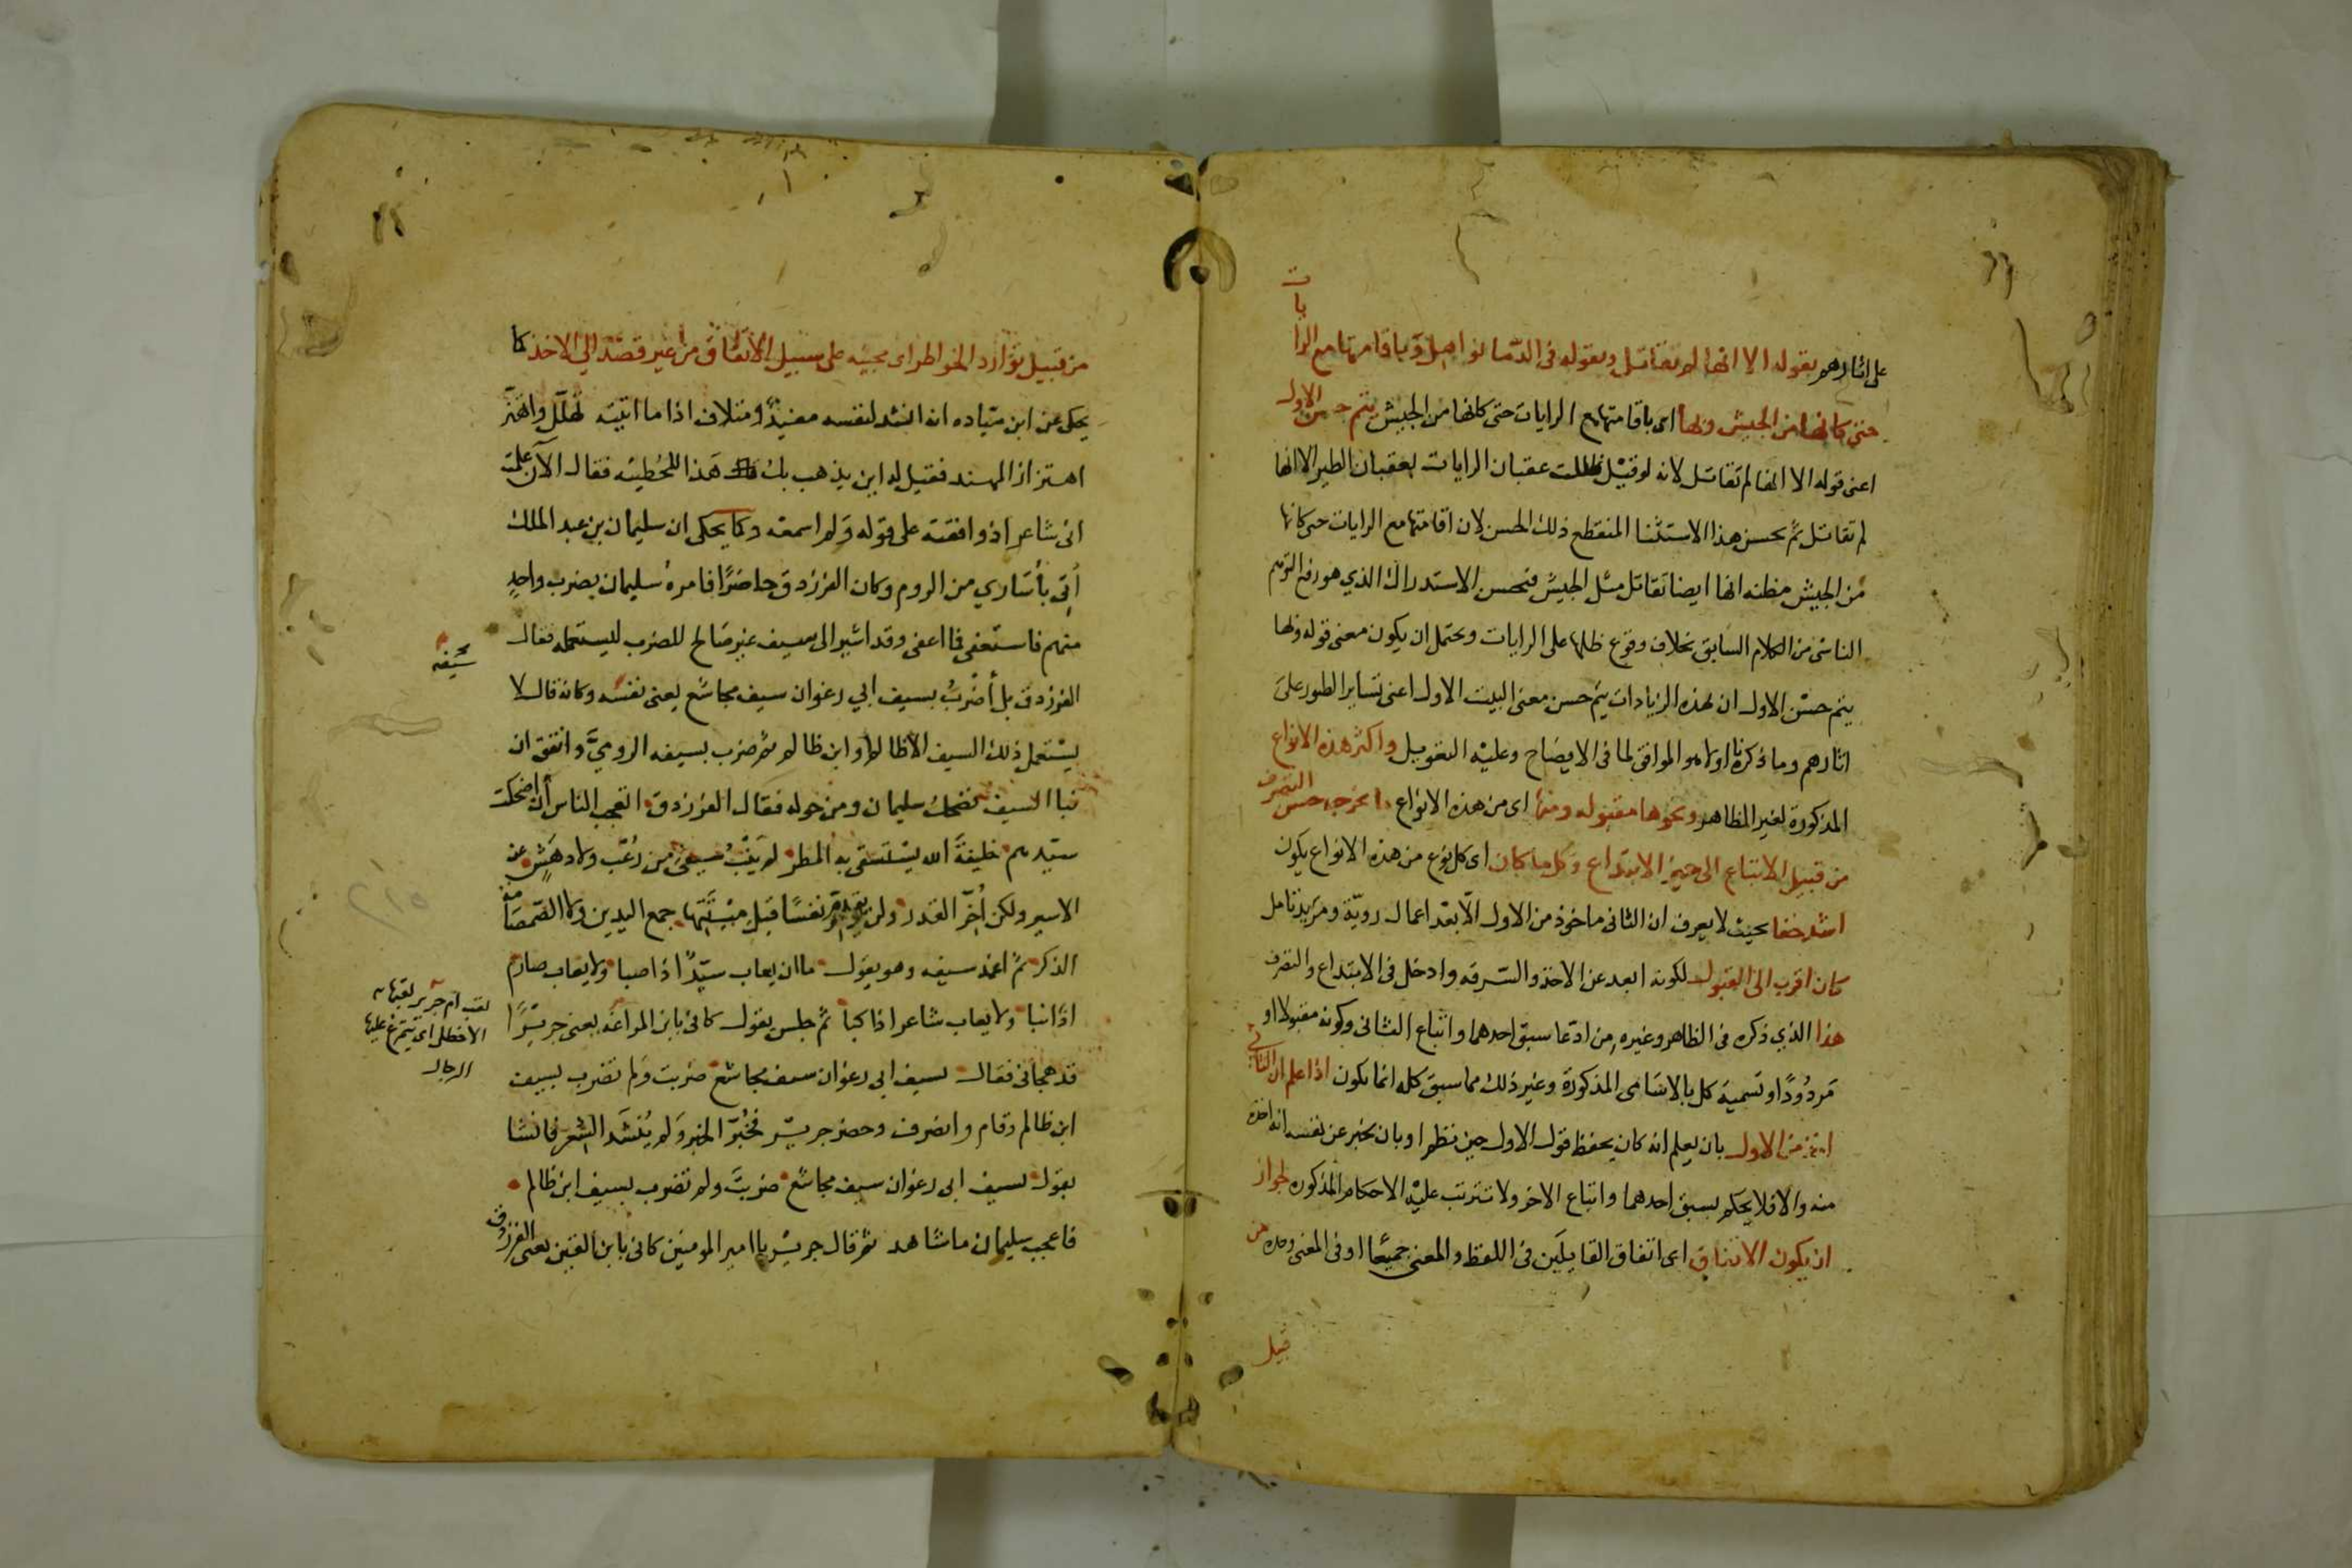 على اثارهم بقوله الا انها لم تقاتل وبقوله في الدما نواهل وباقامتها مع الرايات
حتى كانها من الجيش وبها اى باقامتها مع الرايات حتى كانها من الجيش يتم حسن الاول
اعنى قوله الا انها لم تقاتل لانه لو قيل ظللت عقبان الرايات بعقبان الطير الا انها
لم تقاتل لم يحسن هذا الاستثنا المنقطع ذلك الحسن لان اقامتها مع الرايات حتى كانها
من الجيش مظنه انها ايضا تقاتل مثل الجيش فيحسن الاستدراك الذي هو رفع التوهم
الناشى من الكلام السابق بخلاف وقوع ظلها على الرايات ويحتمل ان يكون معنى قوله وبها
يتم حسن الاول ان بهذه الزيادات يتم حسن معنى البيت الاول اعنى تساير الطيور على
اثارهم وما ذكرنا اولا هو الموافق لما فى الايضاح وعليه التعويل واكثر هذه الانواع
المذكورة لغير الظاهر ونحوها مقبوله ومنها اى من هذه الانواع ما يخرجه حسن التصرف
من قبيل الاتباع الى حيز الابتداع وكل ما كان اى كل نوع من هذه الانواع يكون
اشد خفا بحيث لا يعرف ان الثانى ماخوذ من الاول الا بعد اعمال رويّة ومزيد تامل
كان اقرب الى القبول لكونه ابعد عن الاخذ والسرقه وادخل فى الابتداع والتصرف
هذا الذي ذكره فى الظاهر وغيره من ادّعا سبق احدهما واتباع الثانى وكونه مقبولا او
مردودًا وتسمية كل بالاسامى المذكورة وغير ذلك مما سبق كله انما يكون اذا علم ان الثانى
اخذ من الاول بان يعلم انه كان يحفظ قول الاول حين نظم او بان يخبر عن نفسه انه اخذه
منه والا فلا يحكم بسبق احدهما واتباع الاخر ولا تترتب عليه الاحكام المذكوره لجواز
ان يكون الاتفاق اى اتفاق القايلَين فى اللفظ والمعنى جميعًا او فى المعنى وحده من
قبيل
من قبيل توارد الخواطر اى مجيئه على سبيل الاتفاق من غير قصد الى الاخذ كما
يحكى عن ابن ميّاده انه انشد لنفسه مفيدٌ ومتلاف اذا ما اتيته تهلّل واهتز
اهتزاز المهند فقيل له اين يذهب بك هذا للحُطيئه فقال الآن علمت
انى شاعر اذ وافقته على قوله ولم اسمعه وكما يحكى ان سليمان بن عبد الملك
اُتى بأسارى من الروم وكان الفرزدق حاضرًا فامره سليمان بضرب واحدٍ
منهم فاستعفى فما اعفى وقد اشير الى سيف غير صالح للضرب ليستعمله فقال
الفرزدق بل أضربُ بسيف ابي رغوان سيف مجاشع يعنى نفسه وكانه قال لا
يستعمل ذلك السيف الا ظالم او ابن ظالم ثم ضرب بسيفه الروميَّ واتفق ان
نبا السيف فضحك سليمان ومن حوله فقال الفرزدق ايعجب الناس أن اضحكت
سيّدهم خليفةَ الله يُستسقى به المطر لم يَنبُ سيفى من رُعب ولا دهَشٍ عن
الاسير ولكن اُخِّر القدر ولن يقدم نفسًا قبل ميتتها جمع اليدين ولا الصّمصامة
الذكر ثم اغمد سيفه وهو يقول ما ان يعاب سيّدٌ اذا صبا ولا يعاب صارم
اذا نبا ولا يعاب شاعر اذا كبا ثم جلس يقول كانى بابن المراغه يعنى جريرًا
قد هجانى فقال بسيف ابى رغوان سيف مجاشع ضربت ولم تضرب بسيف
ابن ظالم وقام وانصرف وحضر جرير فخُبّر الخبر ولم يُنشد الشعر فانشا
يقول بسيف ابى رغوان سيف مجاشع ضربتَ ولم تضرب بسيف ابن ظالم
فاعجب سليمان ما شاهد ثم قال جرير يا امير المومنين كانى بابن القين يعنى الفرزدق
سيفه
لقب ام جرير لقبها به
الاخطل اى يتمرغ عليها
الرجال